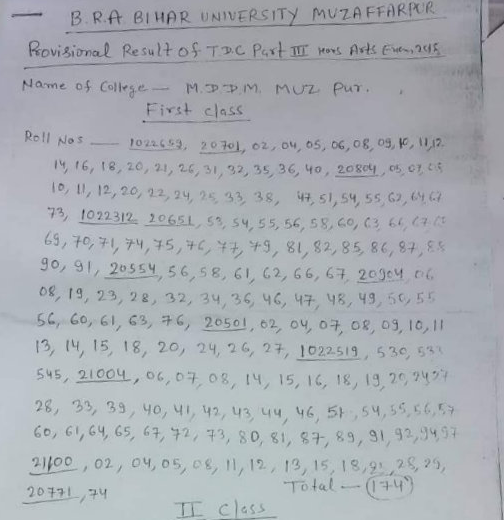 B.R.A. BIHAR UNIVERSITY MUZAFFARPUR
Provisional Result of T.D.C Part III Hons Arts Exam,
Name of College — M.D.D.M. MUZ Pur.
First class
Roll Nos — 1022659, 20701, 02, 04, 05, 06, 08, 09, 10, 11, 12
14, 16, 18, 20, 21, 26, 31, 32, 35, 36, 40, 20804, 05, 07,
10, 11, 12, 20, 22, 24, 25, 33, 38, 47, 51, 54, 55, 62, 64, 67
73, 1022312 20651, 53, 54, 55, 56, 58, 60, 63, 66, 67
69, 70, 71, 74, 75, 76, 77, 79, 81, 82, 85, 86, 87, 88
90, 91, 20554, 56, 58, 61, 62, 66, 67, 20904, 06
08, 19, 23, 28, 32, 34, 36, 46, 47, 48, 49, 50, 55
56, 60, 61, 63, 76, 20501, 02, 04, 07, 08, 09, 10, 11
13, 14, 15, 18, 20, 24, 26, 27, 1022519, 530, 533
545, 21004, 06, 07, 08, 14, 15, 16, 18, 19, 20, 24, 27
28, 33, 39, 40, 41, 42, 43, 44, 46, 51, 54, 55, 56, 57
60, 61, 64, 65, 67, 72, 73, 80, 81, 87, 89, 91, 92, 94, 97
21100, 02, 04, 05, 08, 11, 12, 13, 15, 18, 21, 28, 29,
20771, 74 Total — 174
II Class